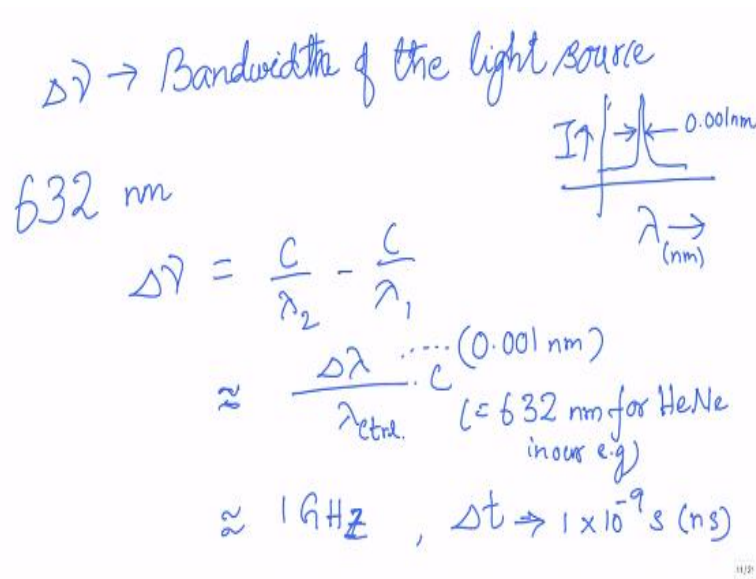 Δν → Bandwidth of the light source
I↑ 0.001nm
632 nm
λ →
(nm)
Δν = C/λ₂ - C/λ₁
≈ Δλ/λctrl. · C ..... (0.001 nm)
(= 632 nm for HeNe
in our e.g)
≈ 1 GHz , Δt ⇒ 1 x 10⁻⁹ s (ns)